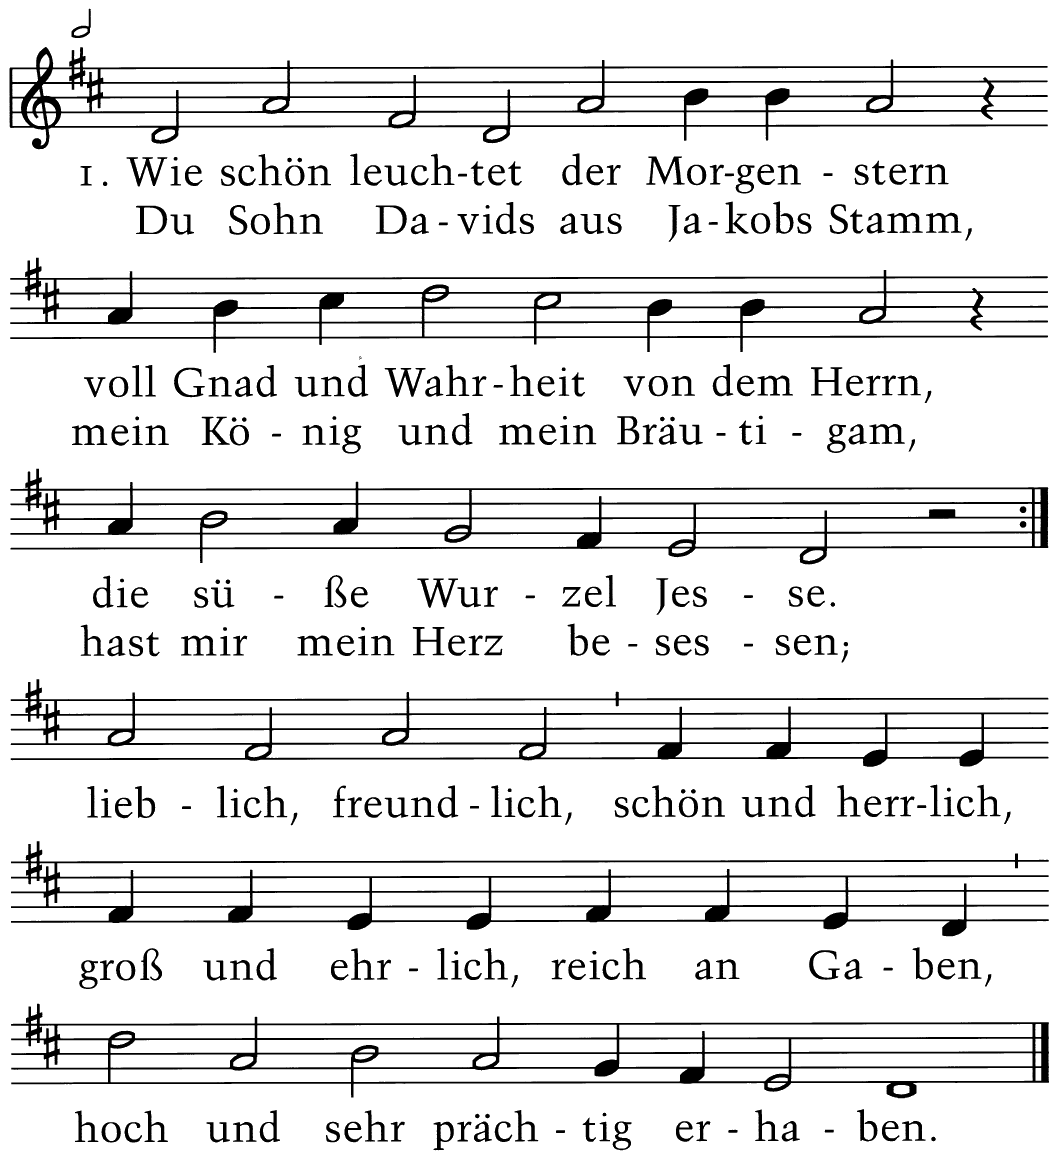 1. Wie schön leuch-tet der Mor-gen - stern
Du Sohn Da - vids aus Ja - kobs Stamm,
voll Gnad und Wahr - heit von dem Herrn,
mein Kö - nig und mein Bräu - ti - gam,
die sü - ße Wur - zel Jes - se.
hast mir mein Herz be - ses - sen;
lieb - lich, freund - lich, schön und herr-lich,
groß und ehr - lich, reich an Ga - ben,
hoch und sehr präch - tig er - ha - ben.